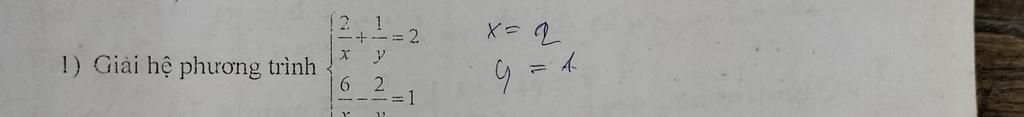 1) Giải hệ phương trình { 2/x + 1/y = 2
6/x - 2/y = 1
x = 2
y = 1